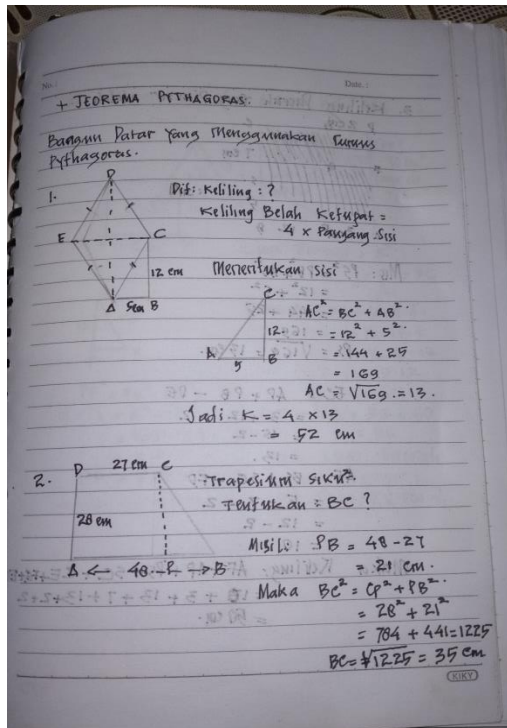 No.:
Date.:
+ TEOREMA PYTHAGORAS.
Bangun Datar Yang Menggunakan Rumus
Pythagoras.
1.
D
E
C
12 cm
A 5cm B
Dit: Keliling : ?
Keliling Belah Ketupat =
4 x Panjang Sisi
Menentukan sisi
C
12.
A
5
B
AC² = BC² + AB²
= 12² + 5²
= 144 + 25
= 169
AC = √169 = 13.
Jadi K = 4 x 13
= 52 cm
2.
D 27 cm C
28 cm
A ← 48 - P → B
Trapesium siku²
Tentukan : BC ?
Misil : PB = 48 - 27
= 21 cm.
Maka BC² = CP² + PB²
= 28² + 21²
= 784 + 441 = 1225
BC = √1225 = 35 cm
KIKY